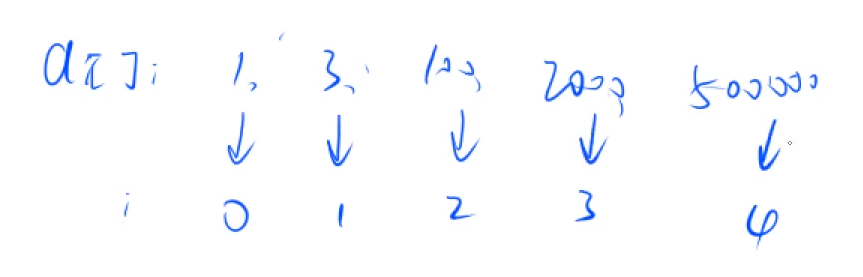 a[]: 1, 3, 100, 2000, 500000
↓ ↓ ↓ ↓ ↓
i 0 1 2 3 4